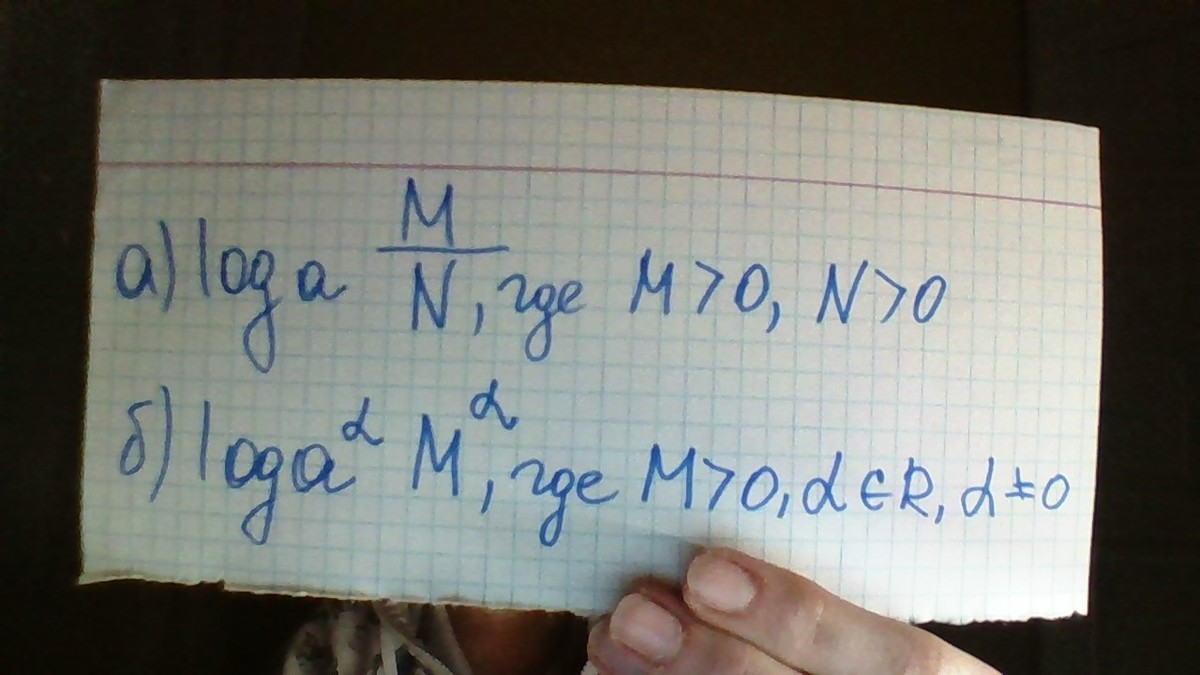 а) log a M/N, где M>0, N>0
б) log a^α M^α, где M>0, α∈R, α≠0